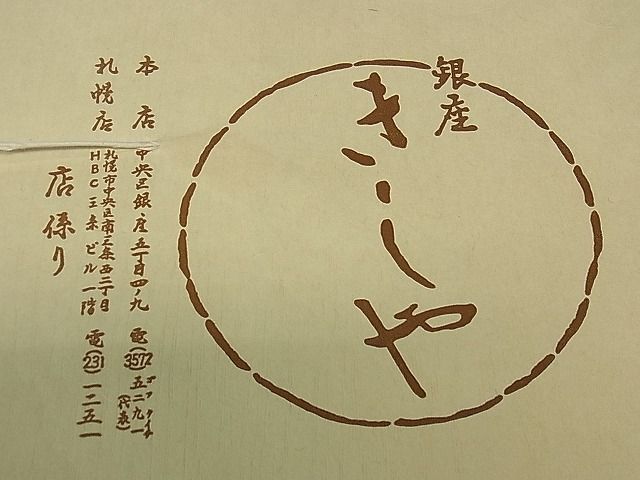 銀座
きしや
本店 中央区銀座五丁目四ノ九 電(3572)五二九一(代表)
ゴフクイチ
札幌店 札幌市中央区南三条西二丁目
HBC三条ビル一階 電(231)一二五一
店係り